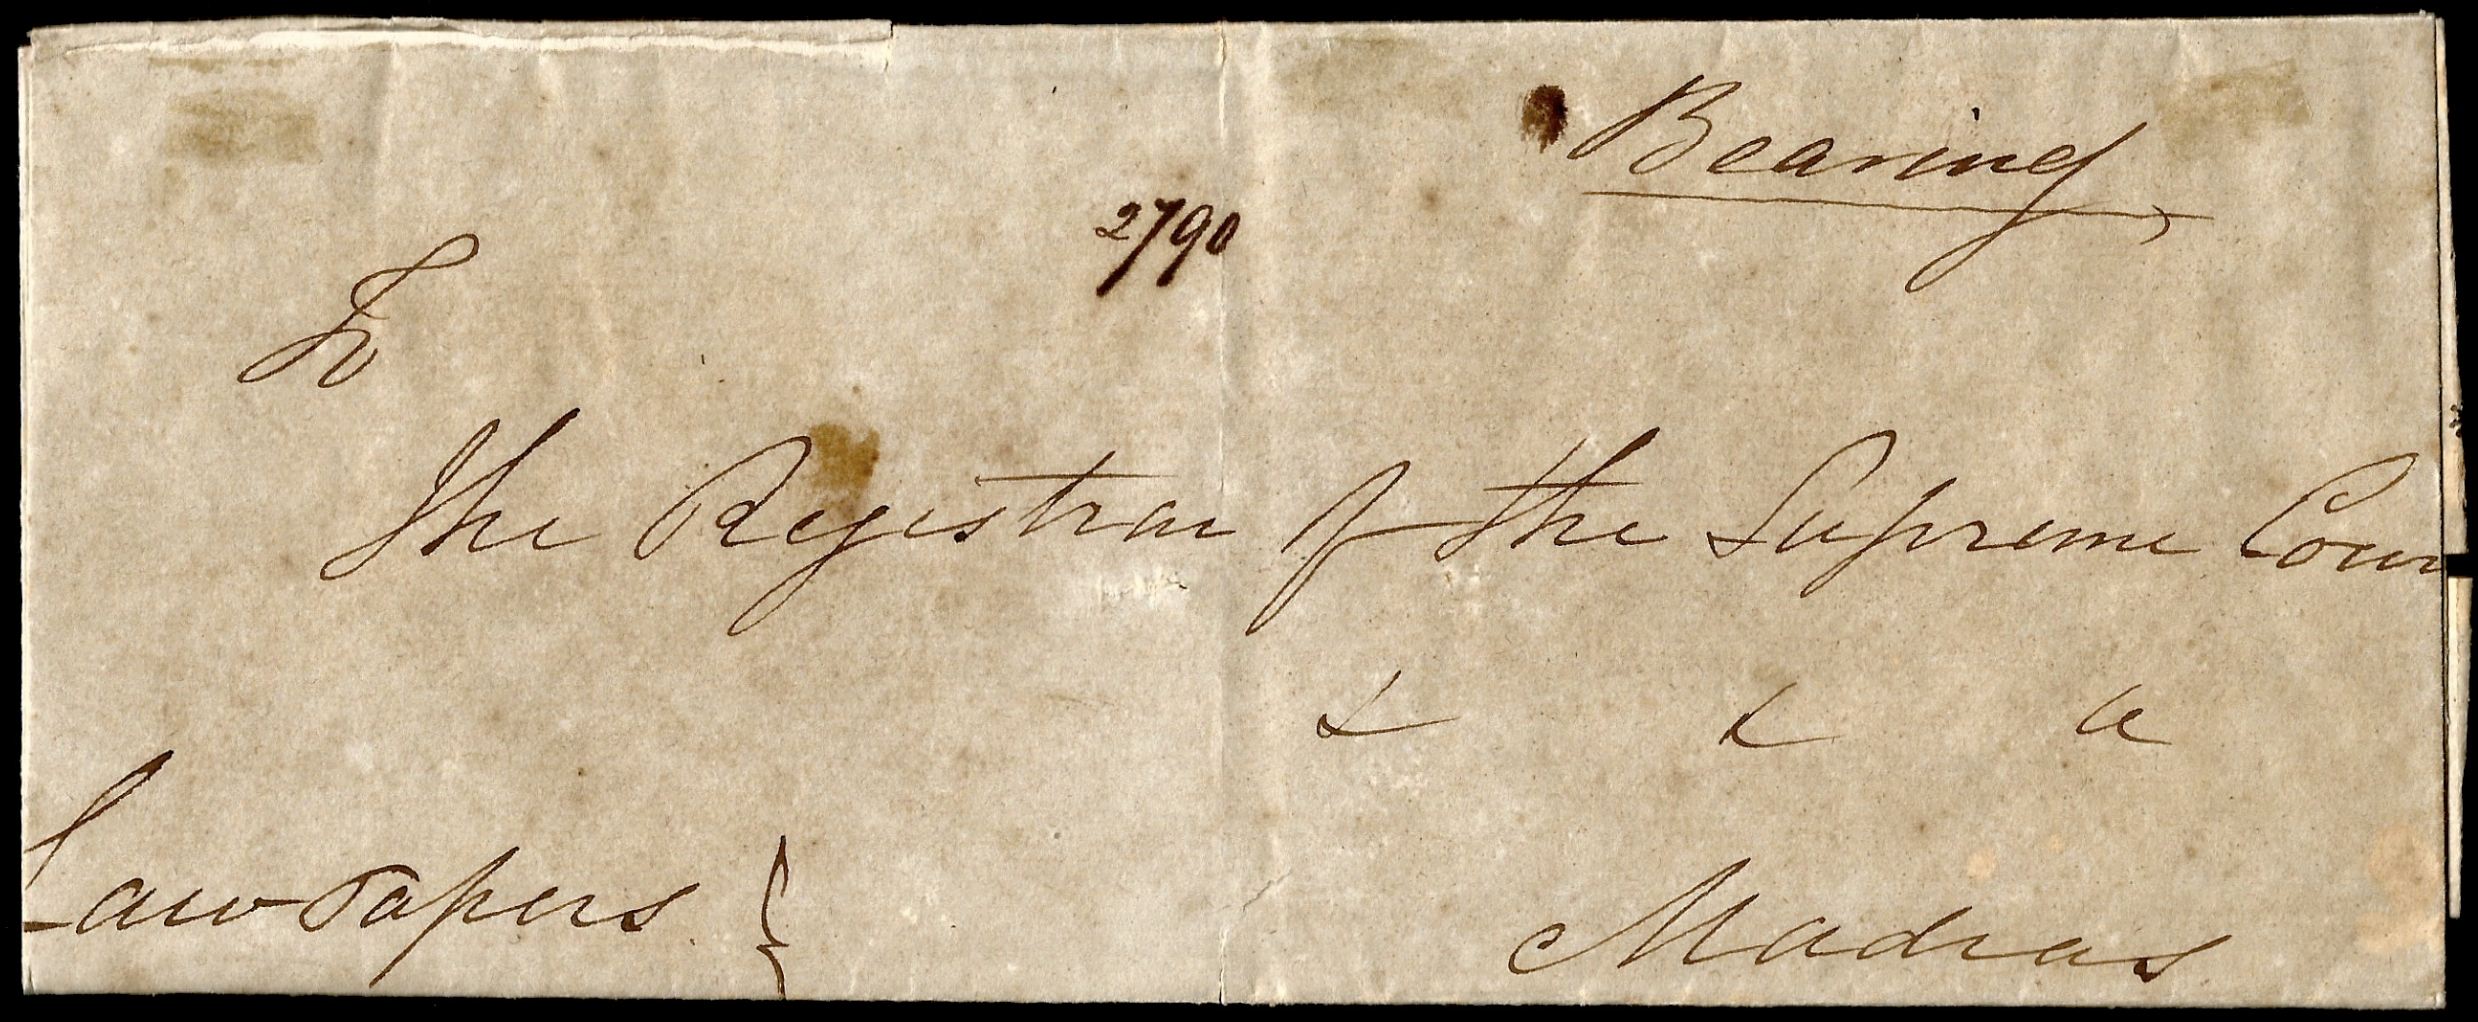 Bearing
2790
To
The Registrar of the Supreme Cour
& & &
Law Papers }
Madras